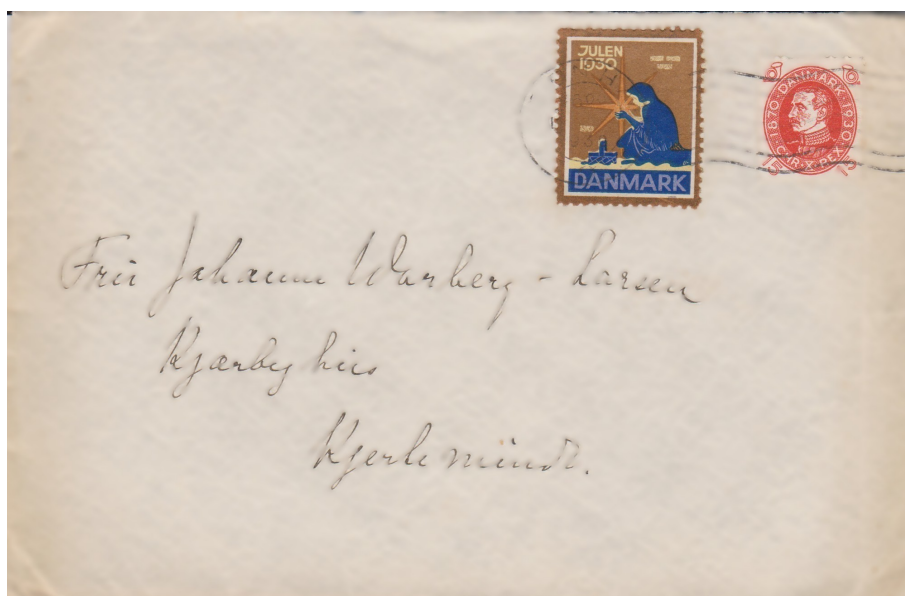 JULEN
1930
DANMARK
1870 · DANMARK · 1930
CHR · X · REX
15 15
Fru Johanne Warberg-Larsen
Kjærbyhus
Kjerteminde.